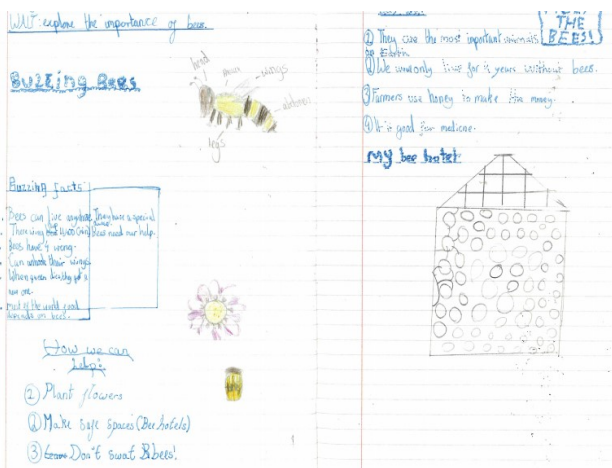 WALT: explore the importance of bees.
Buzzing Bees
head
wings
legs
Buzzing facts
Bees can live anywhere
Bees have 4 wing.
Can their wings
When queen
new one.
most of the world food
depends on bees.
They have a special
Bees need our help.
How we can
help:
② Plant flowers
① Make safe spaces (Bee hotels)
③ Don't swat Bbees!
THE
BEES!
② They are the most important
① We would only live for 4 years without bees.
③ Farmers use honey to make money.
④ It is good for medicine.
My bee hotel